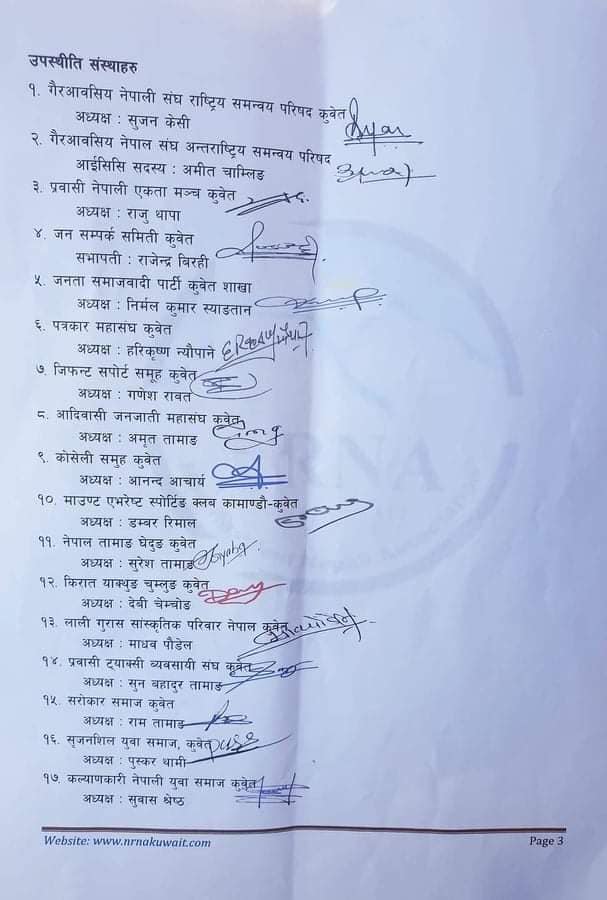 उपस्थीति संस्थाहरु
१. गैरआवसिय नेपाली संघ राष्ट्रिय समन्वय परिषद कुवेत
अध्यक्ष : सुजन केसी
२. गैरआवसिय नेपाल संघ अन्तराष्ट्रिय समन्वय परिषद
आईसिसि सदस्य : अमीत चाम्लिङ
३. प्रवासी नेपाली एकता मञ्च कुवेत
अध्यक्ष : राजु थापा
४. जन सम्पर्क समिती कुवेत
सभापती : राजेन्द्र बिरही
५. जनता समाजवादी पार्टी कुवेत शाखा
अध्यक्ष : निर्मल कुमार स्याङतान
६. पत्रकार महासंघ कुवेत
अध्यक्ष : हरिकृष्ण न्यौपाने
७. जिफन्ट सपोर्ट समूह कुवेत
अध्यक्ष : गणेश रावत
८. आदिवासी जनजाती महासंघ कुवेत
अध्यक्ष : अमृत तामाङ
९. कोसेली समुह कुवेत
अध्यक्ष : आनन्द आचार्य
१०. माउण्ट एभरेष्ट स्पोर्टिङ क्लब कामाण्डौ-कुवेत
अध्यक्ष : डम्बर रिमाल
११. नेपाल तामाङ घेदुङ कुवेत
अध्यक्ष : सुरेश तामाङ
१२. किरात याक्थुङ चुम्लुङ कुवेत
अध्यक्ष : देबी चेम्जोङ
१३. लाली गुरास सांस्कृतिक परिवार नेपाल कुवेत
अध्यक्ष : माधव पौडेल
१४. प्रवासी ट्याक्सी व्यवसायी संघ कुवेत
अध्यक्ष : सुन बहादुर तामाङ
१५. सरोकार समाज कुवेत
अध्यक्ष : राम तामाङ
१६. सृजनशिल युवा समाज, कुवेत
अध्यक्ष : पुस्कर थामी
१७. कल्याणकारी नेपाली युवा समाज कुवेत
अध्यक्ष : सुबास श्रेष्ठ
NRNA
Website: www.nrnakuwait.com Page 3